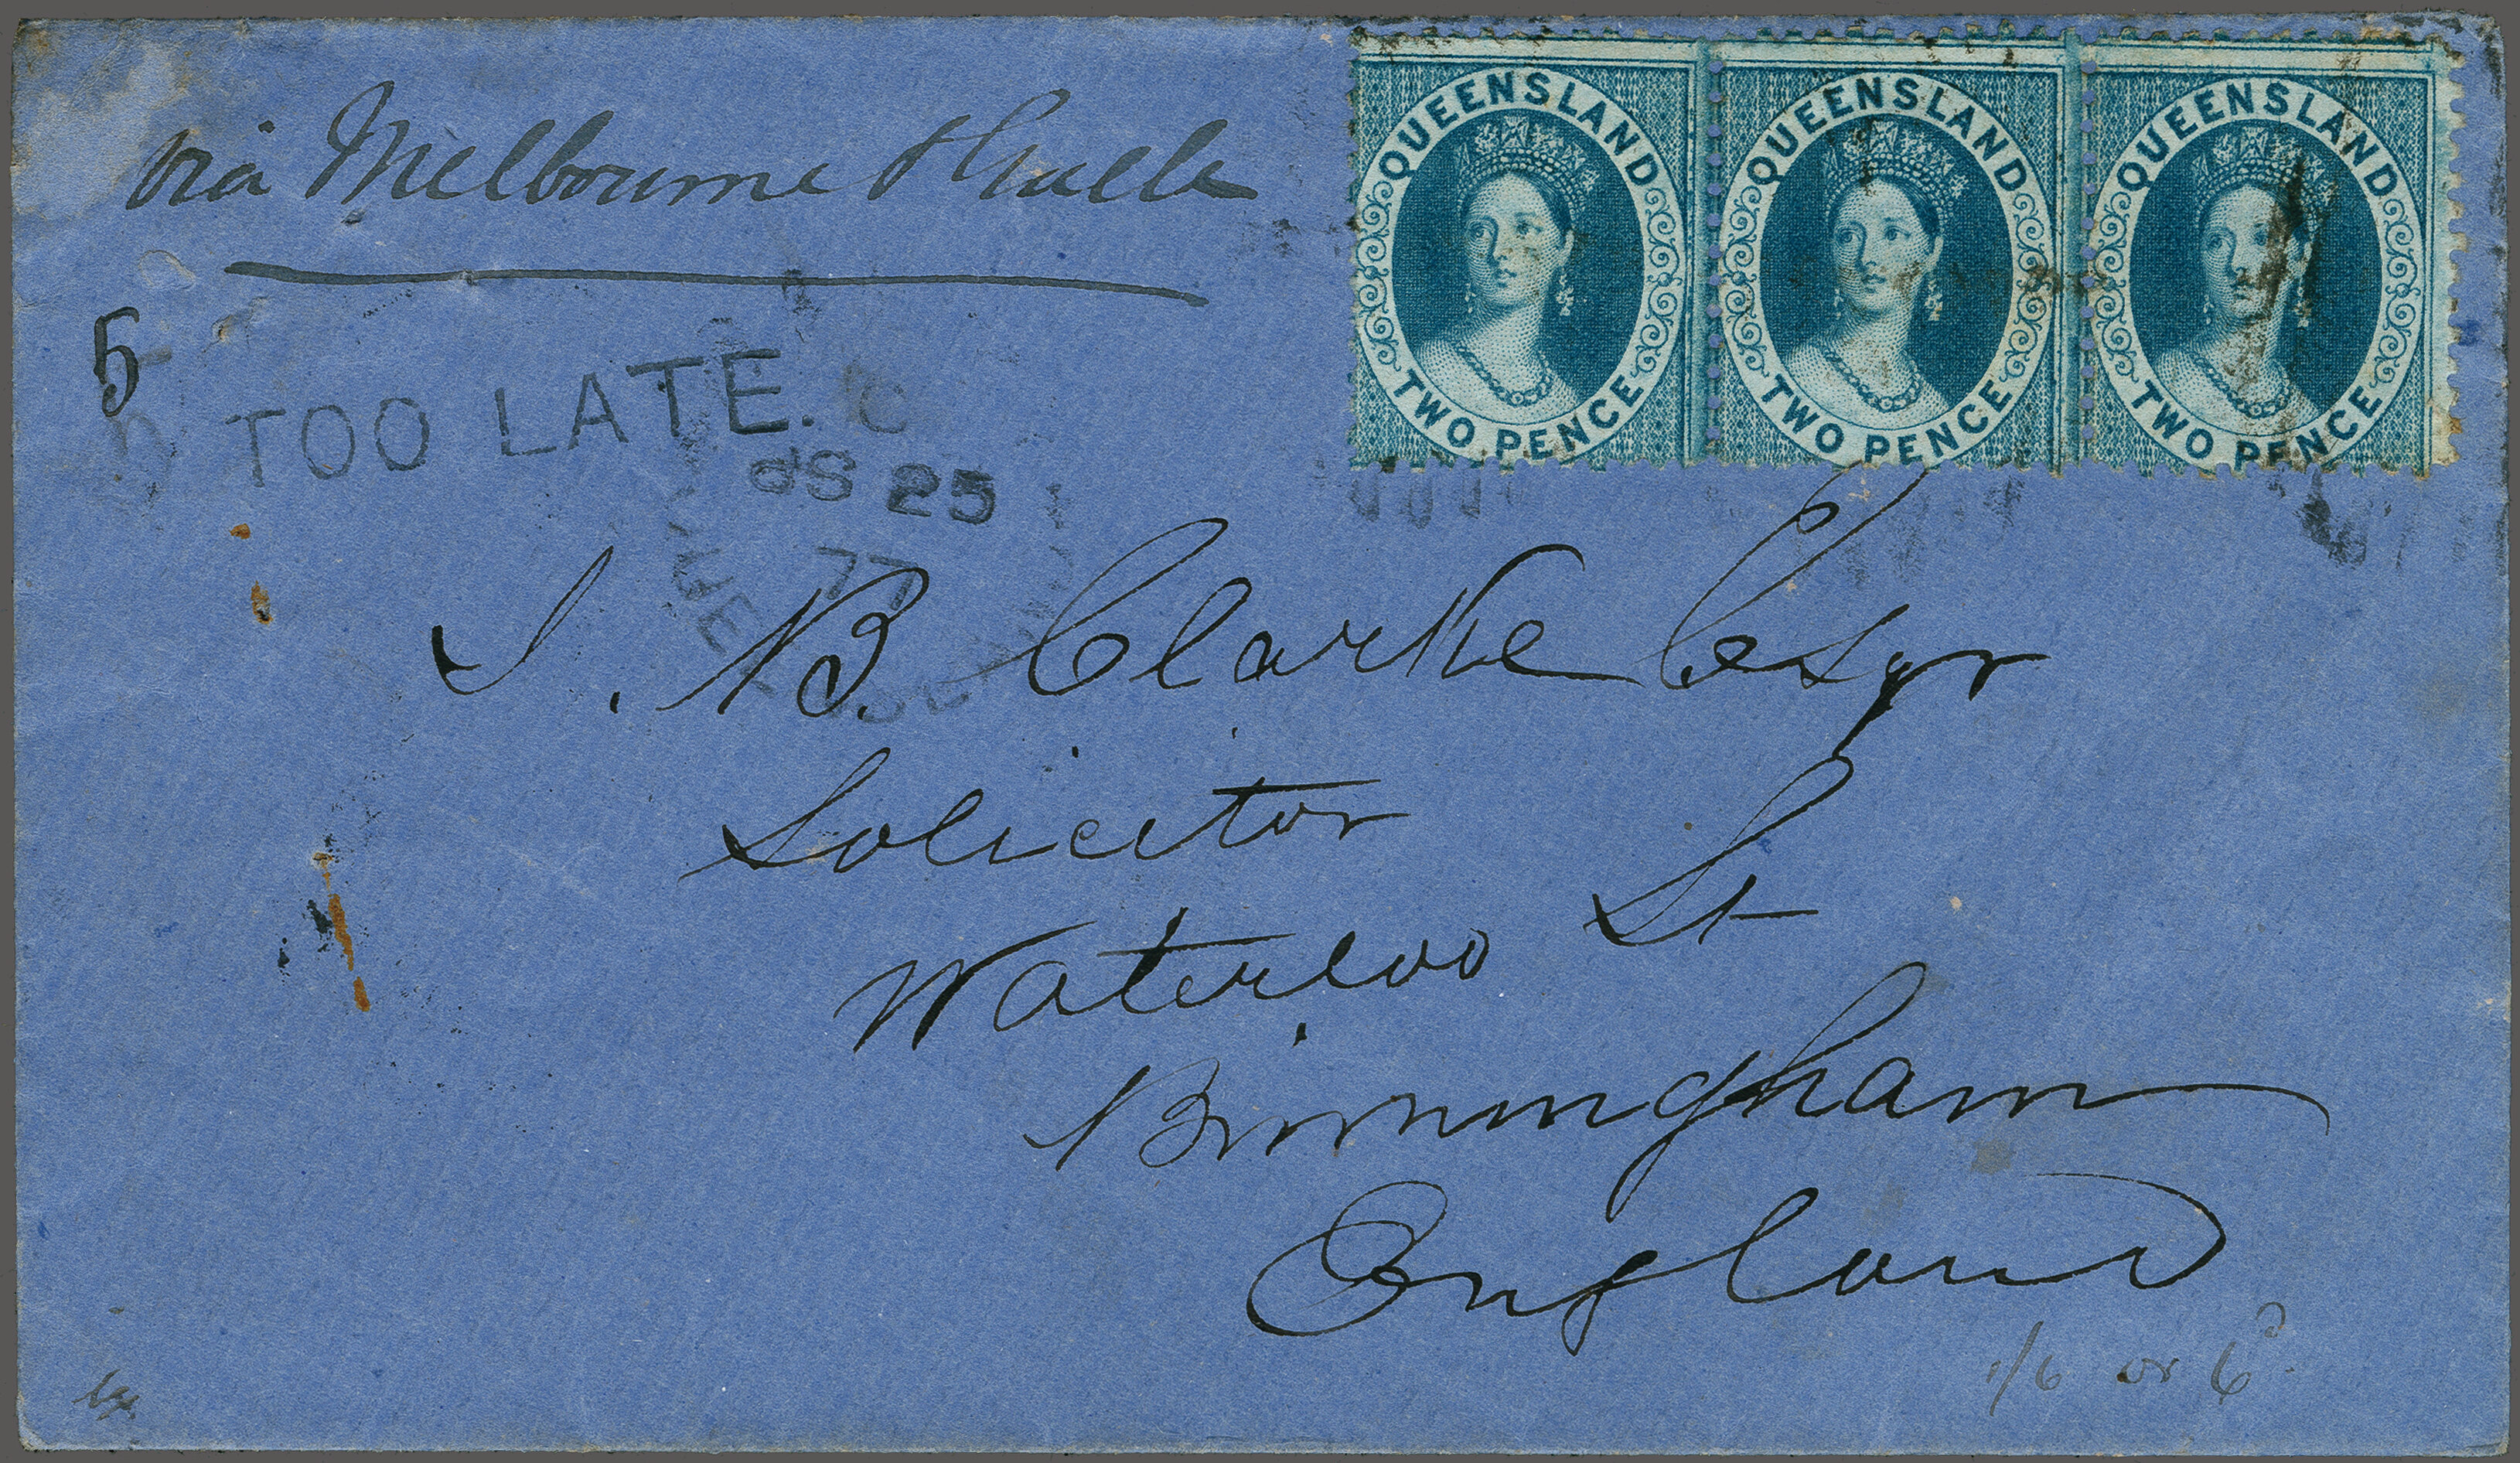 via Melbourne & Galle
QUEENSLAND
TWO PENCE
QUEENSLAND
TWO PENCE
QUEENSLAND
TWO PENCE
5
TOO LATE.
25
77
QUEENSLAND
J. B. Clarke Esqr
Solicitor
Waterloo St
Birmingham
England
1/6 or 6d